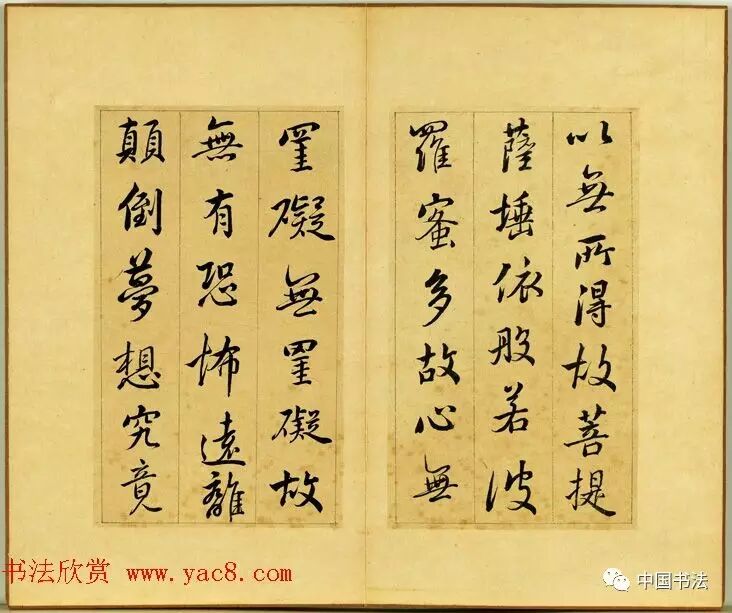 以無所得故菩提
薩埵依般若波
羅蜜多故心無
罣礙無罣礙故
無有恐怖遠離
顛倒夢想究竟
书法欣赏 www.yac8.com
中国书法